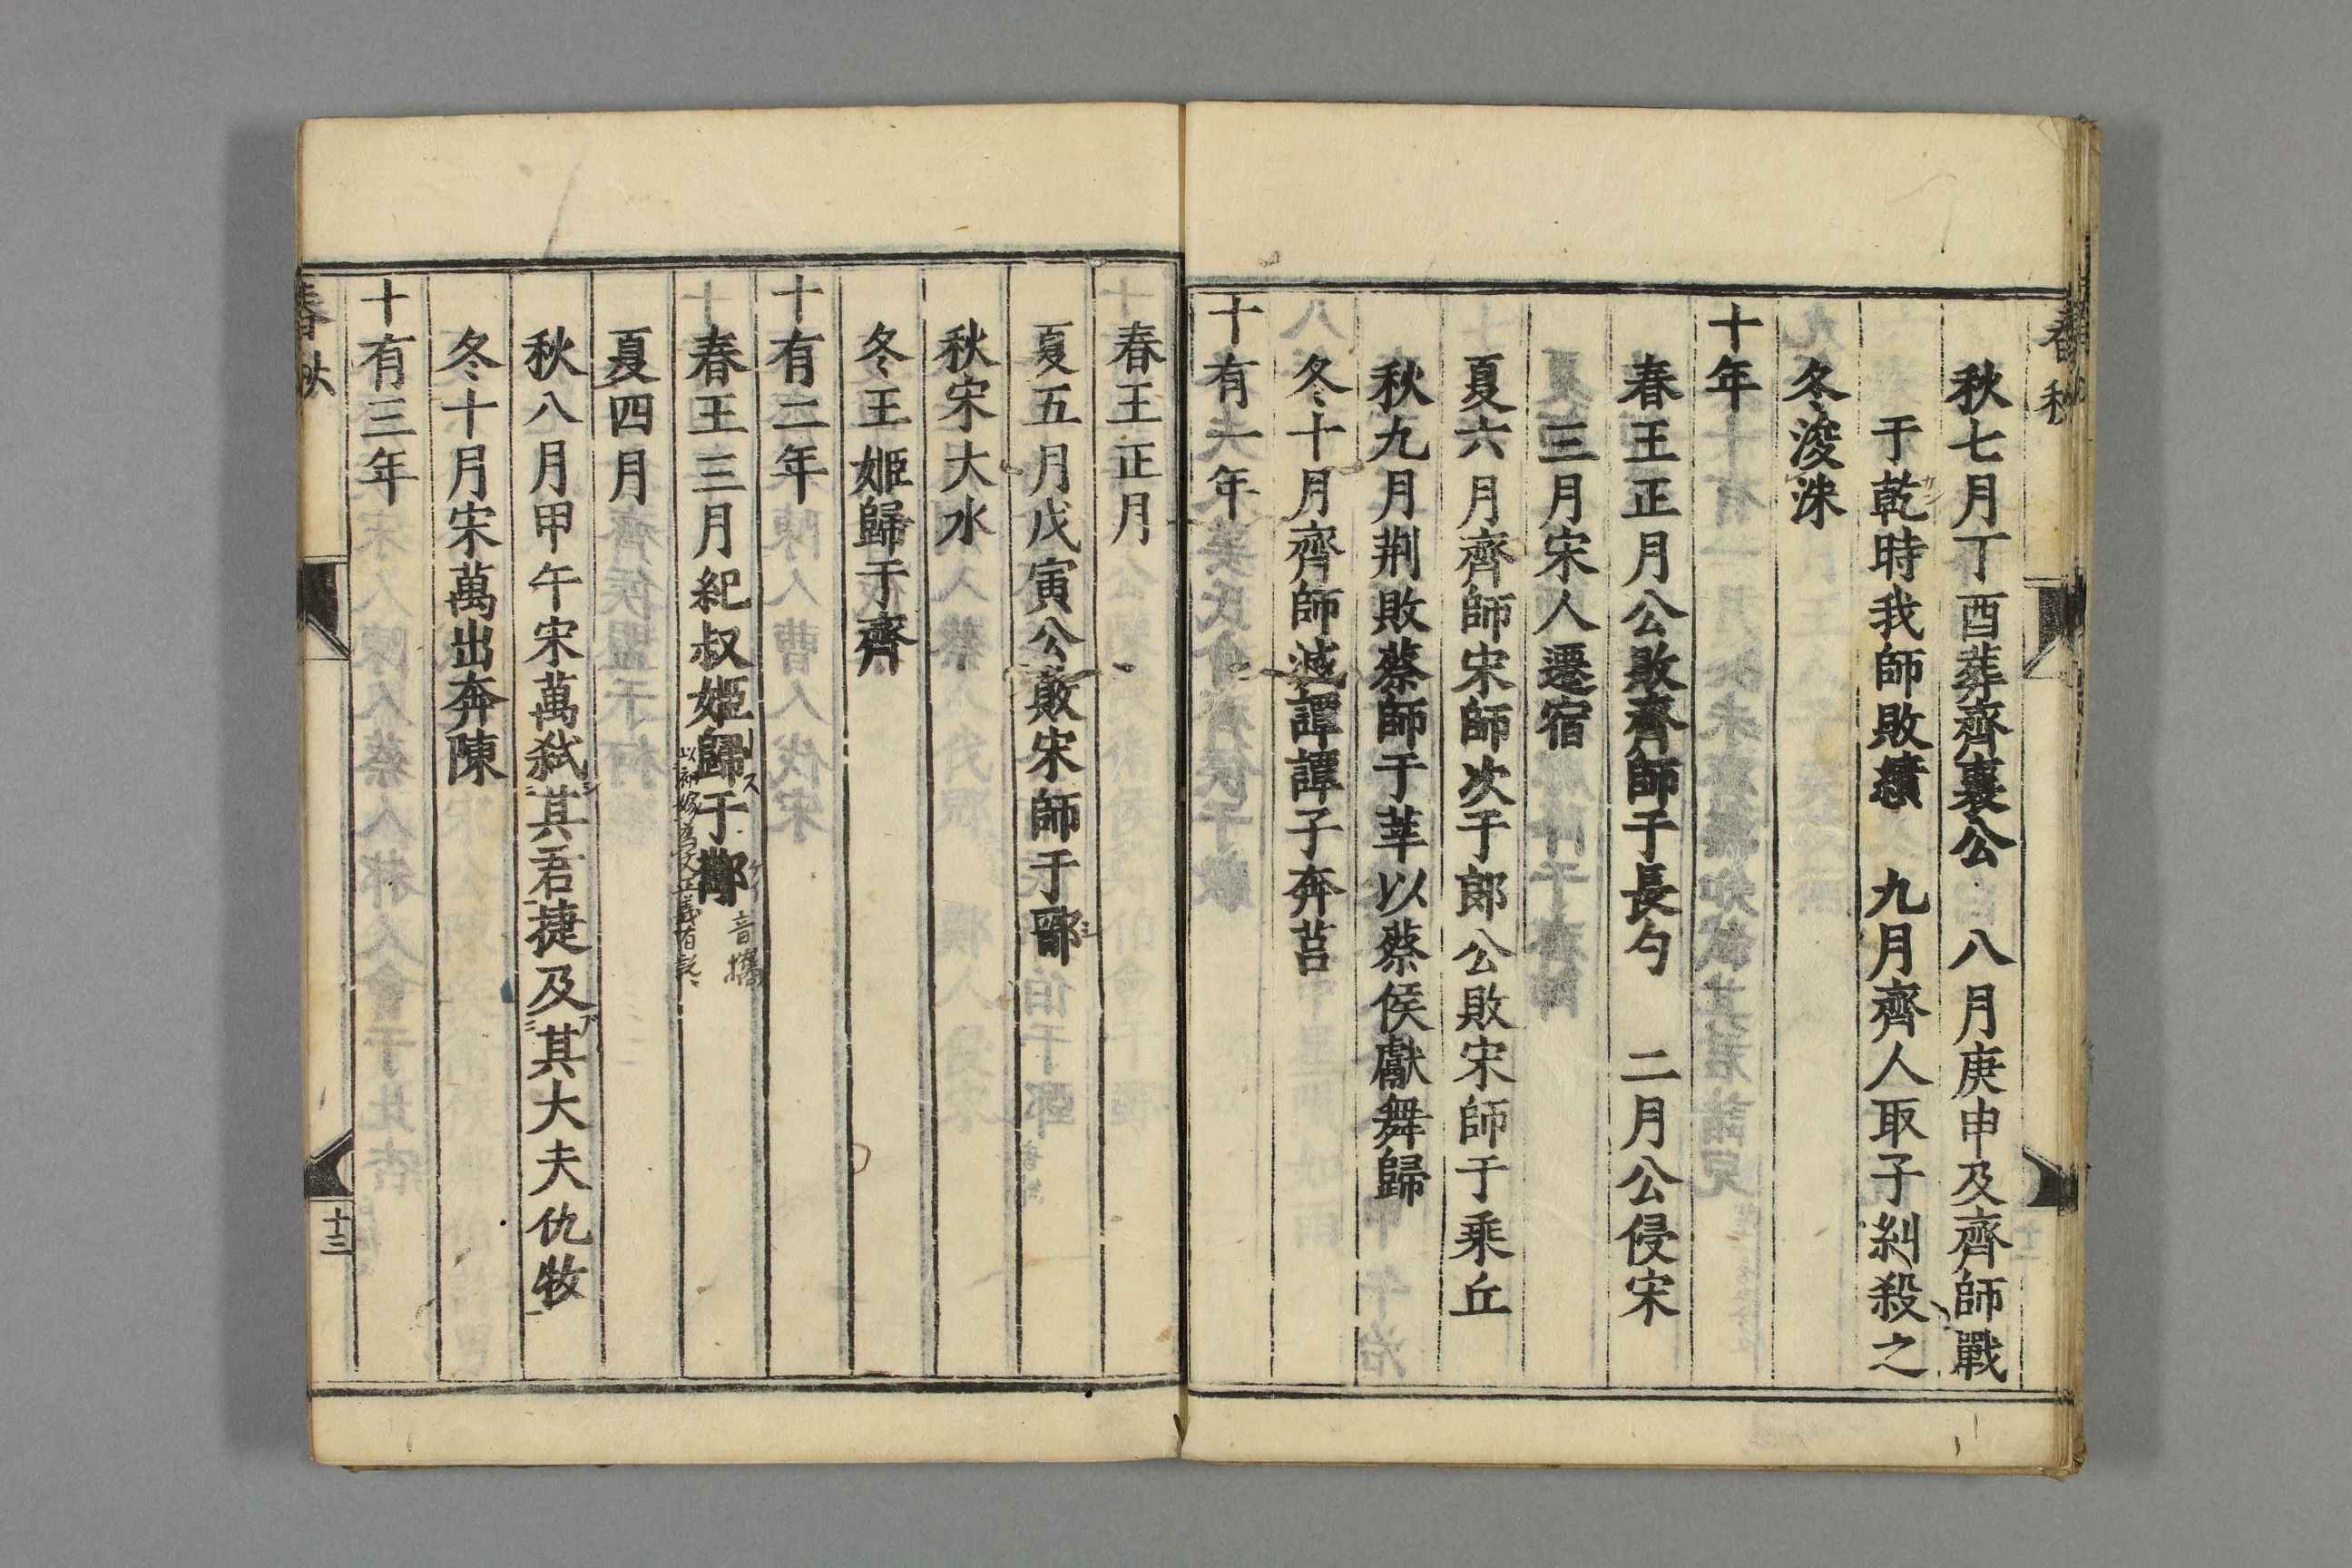 春秋
秋七月丁酉葬齊襄公　八月庚申及齊師戰
于乾時我師敗績　九月齊人取子糾殺之
冬浚洙
十年
春王正月公敗齊師于長勺　二月公侵宋
三月宋人遷宿
夏六月齊師宋師次于郎公敗宋師于乘丘
秋九月荆敗蔡師于莘以蔡侯獻舞歸
冬十月齊師滅譚譚子奔莒
十有一年
春王正月
夏五月戊寅公敗宋師于鄑
秋宋大水
冬王姬歸于齊
十有二年
春王三月紀叔姬歸于酅
音攜
夏四月
秋八月甲午宋萬弑其君捷及其大夫仇牧
冬十月宋萬出奔陳
十有三年
春秋
十二